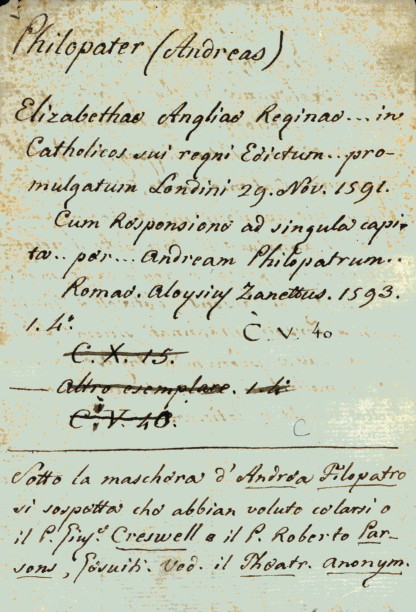 Philopater (Andreas)
Elizabethae Angliae Reginae... in
Catholicos sui regni Edictum.. pro-
mulgatum Londini 29. Nov. 1591.
Cum Responsione ad singula capi-
ta.. per... Andream Philopatrum..
Romae. Aloysius Zanettus. 1593.
1. 4°.
C. V. 40
C. X. 15.
Altro esemplare. 1. 4°
C. V. 40.
C
Sotto la maschera d'Andrea Filopatro
si sospetta che abbian voluto celarsi o
il P. Gius.e Creswell e il P. Roberto Par-
sons, Gesuiti. Ved. il Theatr. anonym.